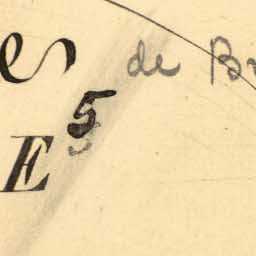 es de Br
E 5